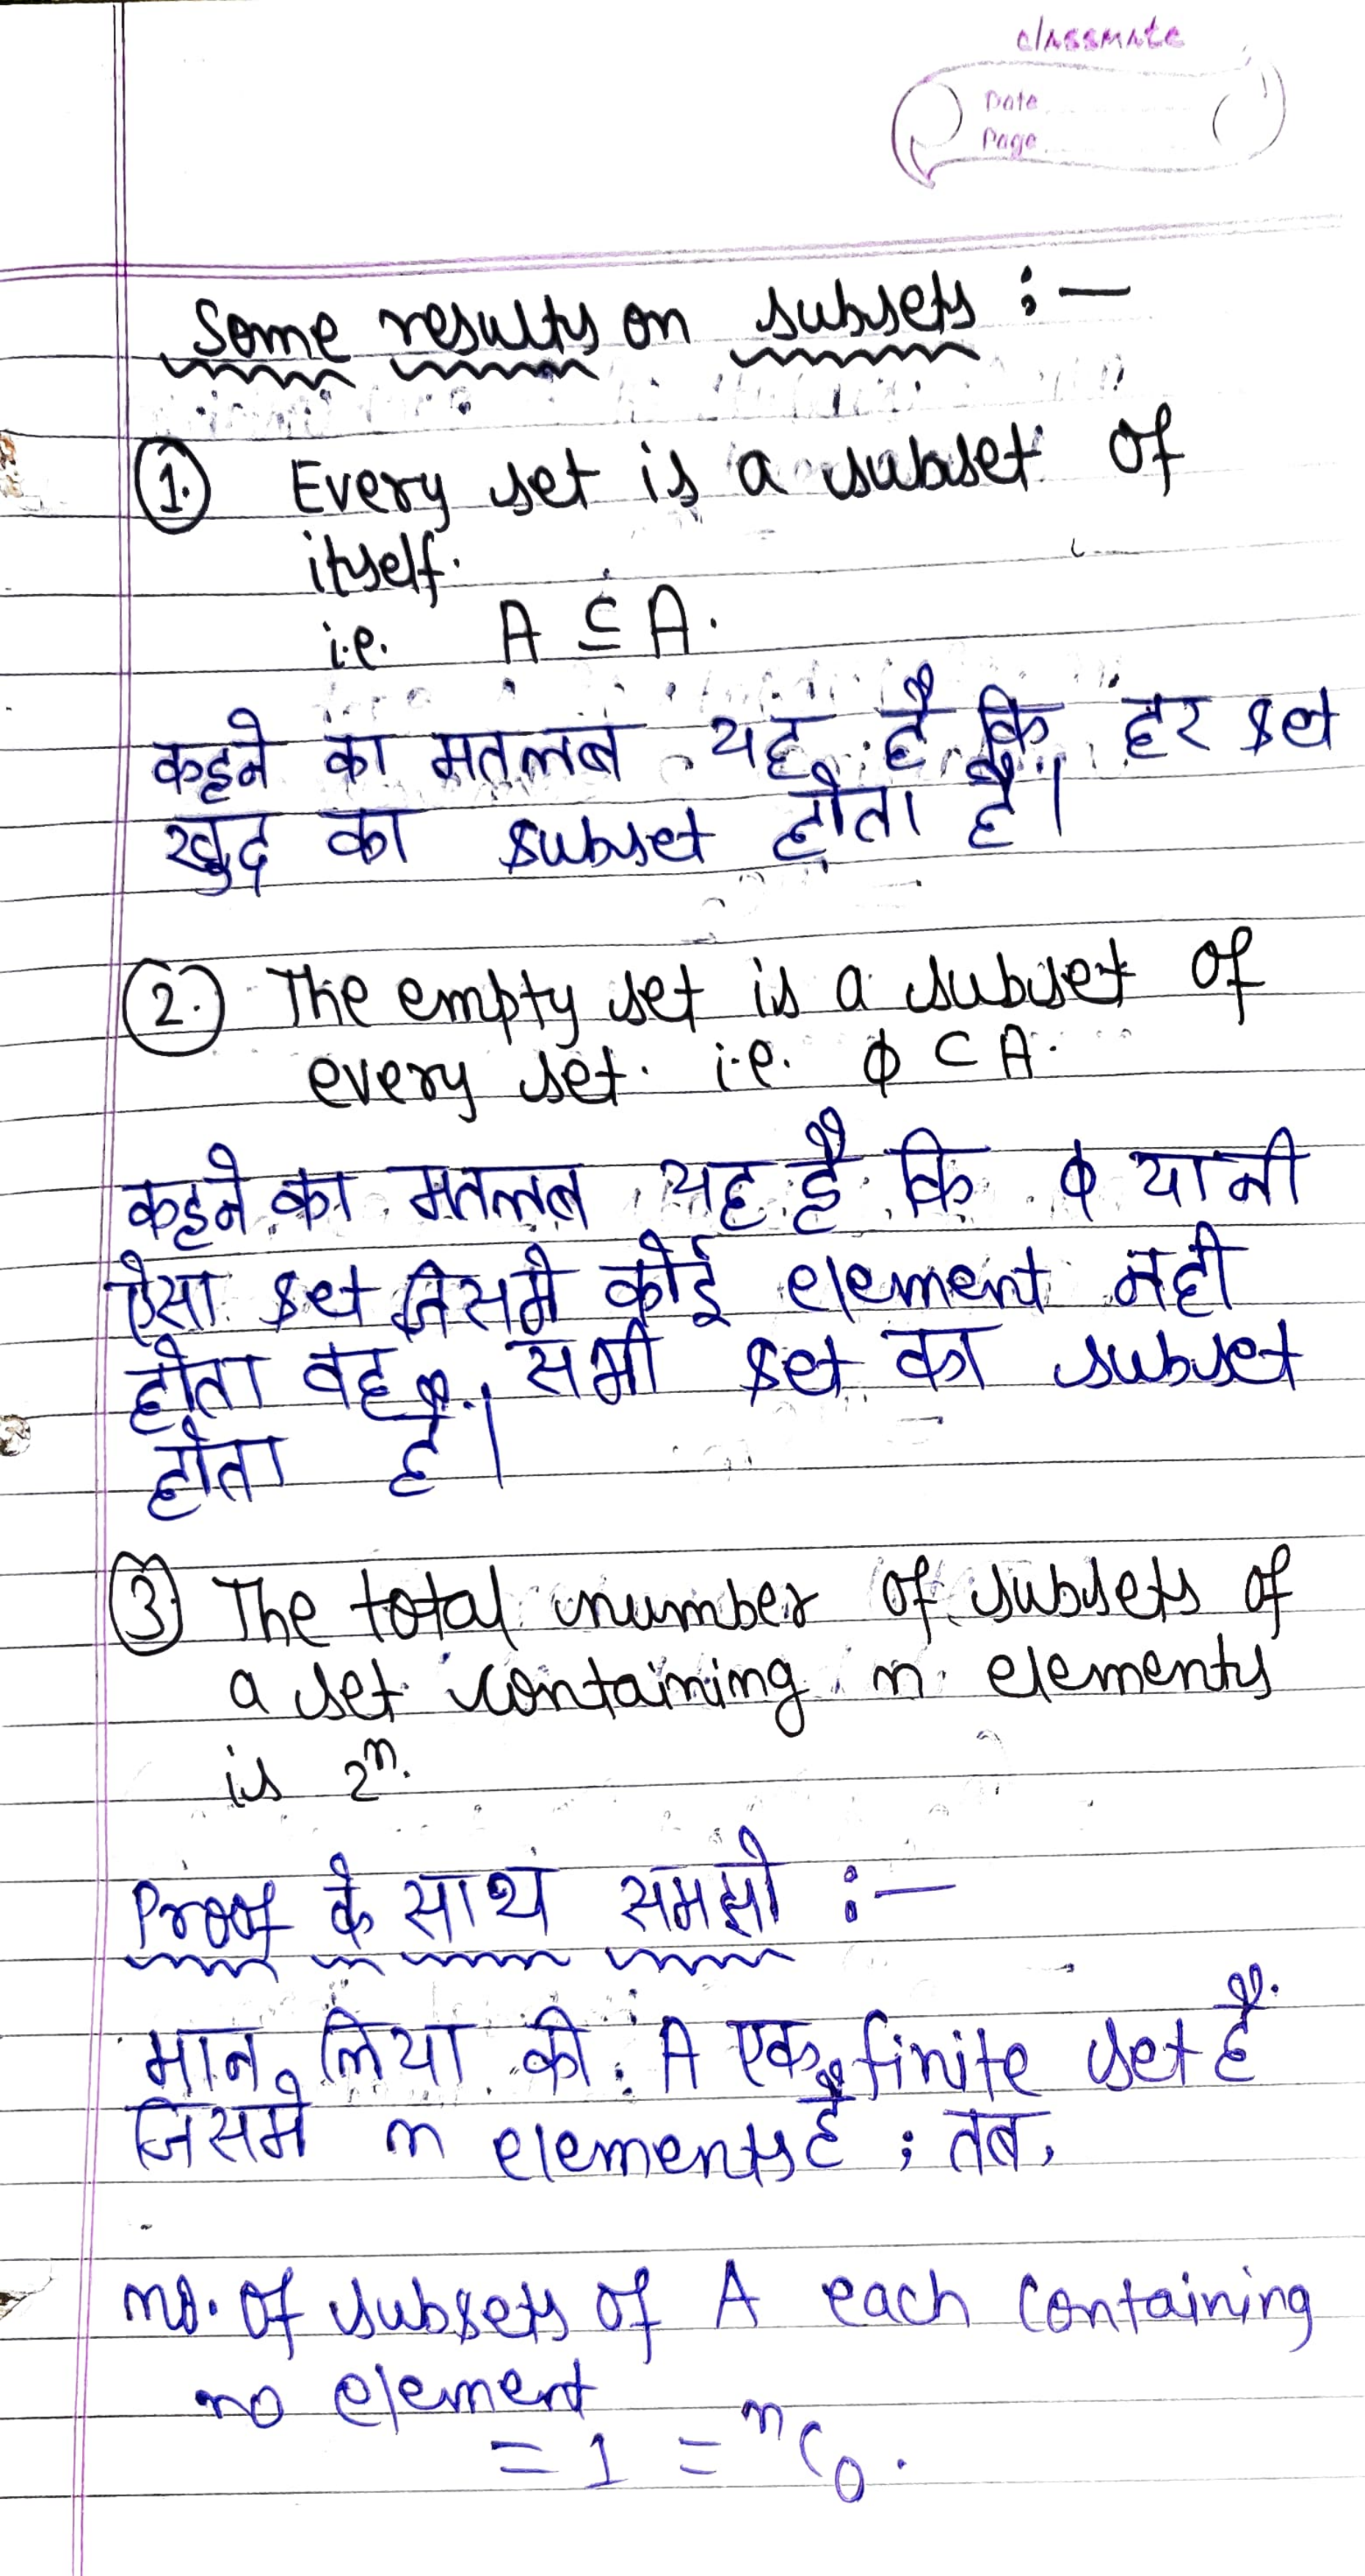 classmate
Date
Page
Some results on subsets :—
1. Every set is a subset of
itself.
i.e. A ⊆ A.
कहने का मतलब यह है कि हर set
खुद का subset होता है।
2. The empty set is a subset of
every set. i.e. ϕ ⊂ A.
कहने का मतलब यह है कि ϕ यानी
ऐसा set जिसमे कोई element नही
होता वह सभी set का subset
होता है।
3. The total number of subsets of
a set containing n elements
is 2ⁿ.
Proof के साथ समझो :—
मान लिया की A एक finite set है
जिसमे n elements है ; तब,
no. of subsets of A each containing
no element
= 1 = ⁿC₀.